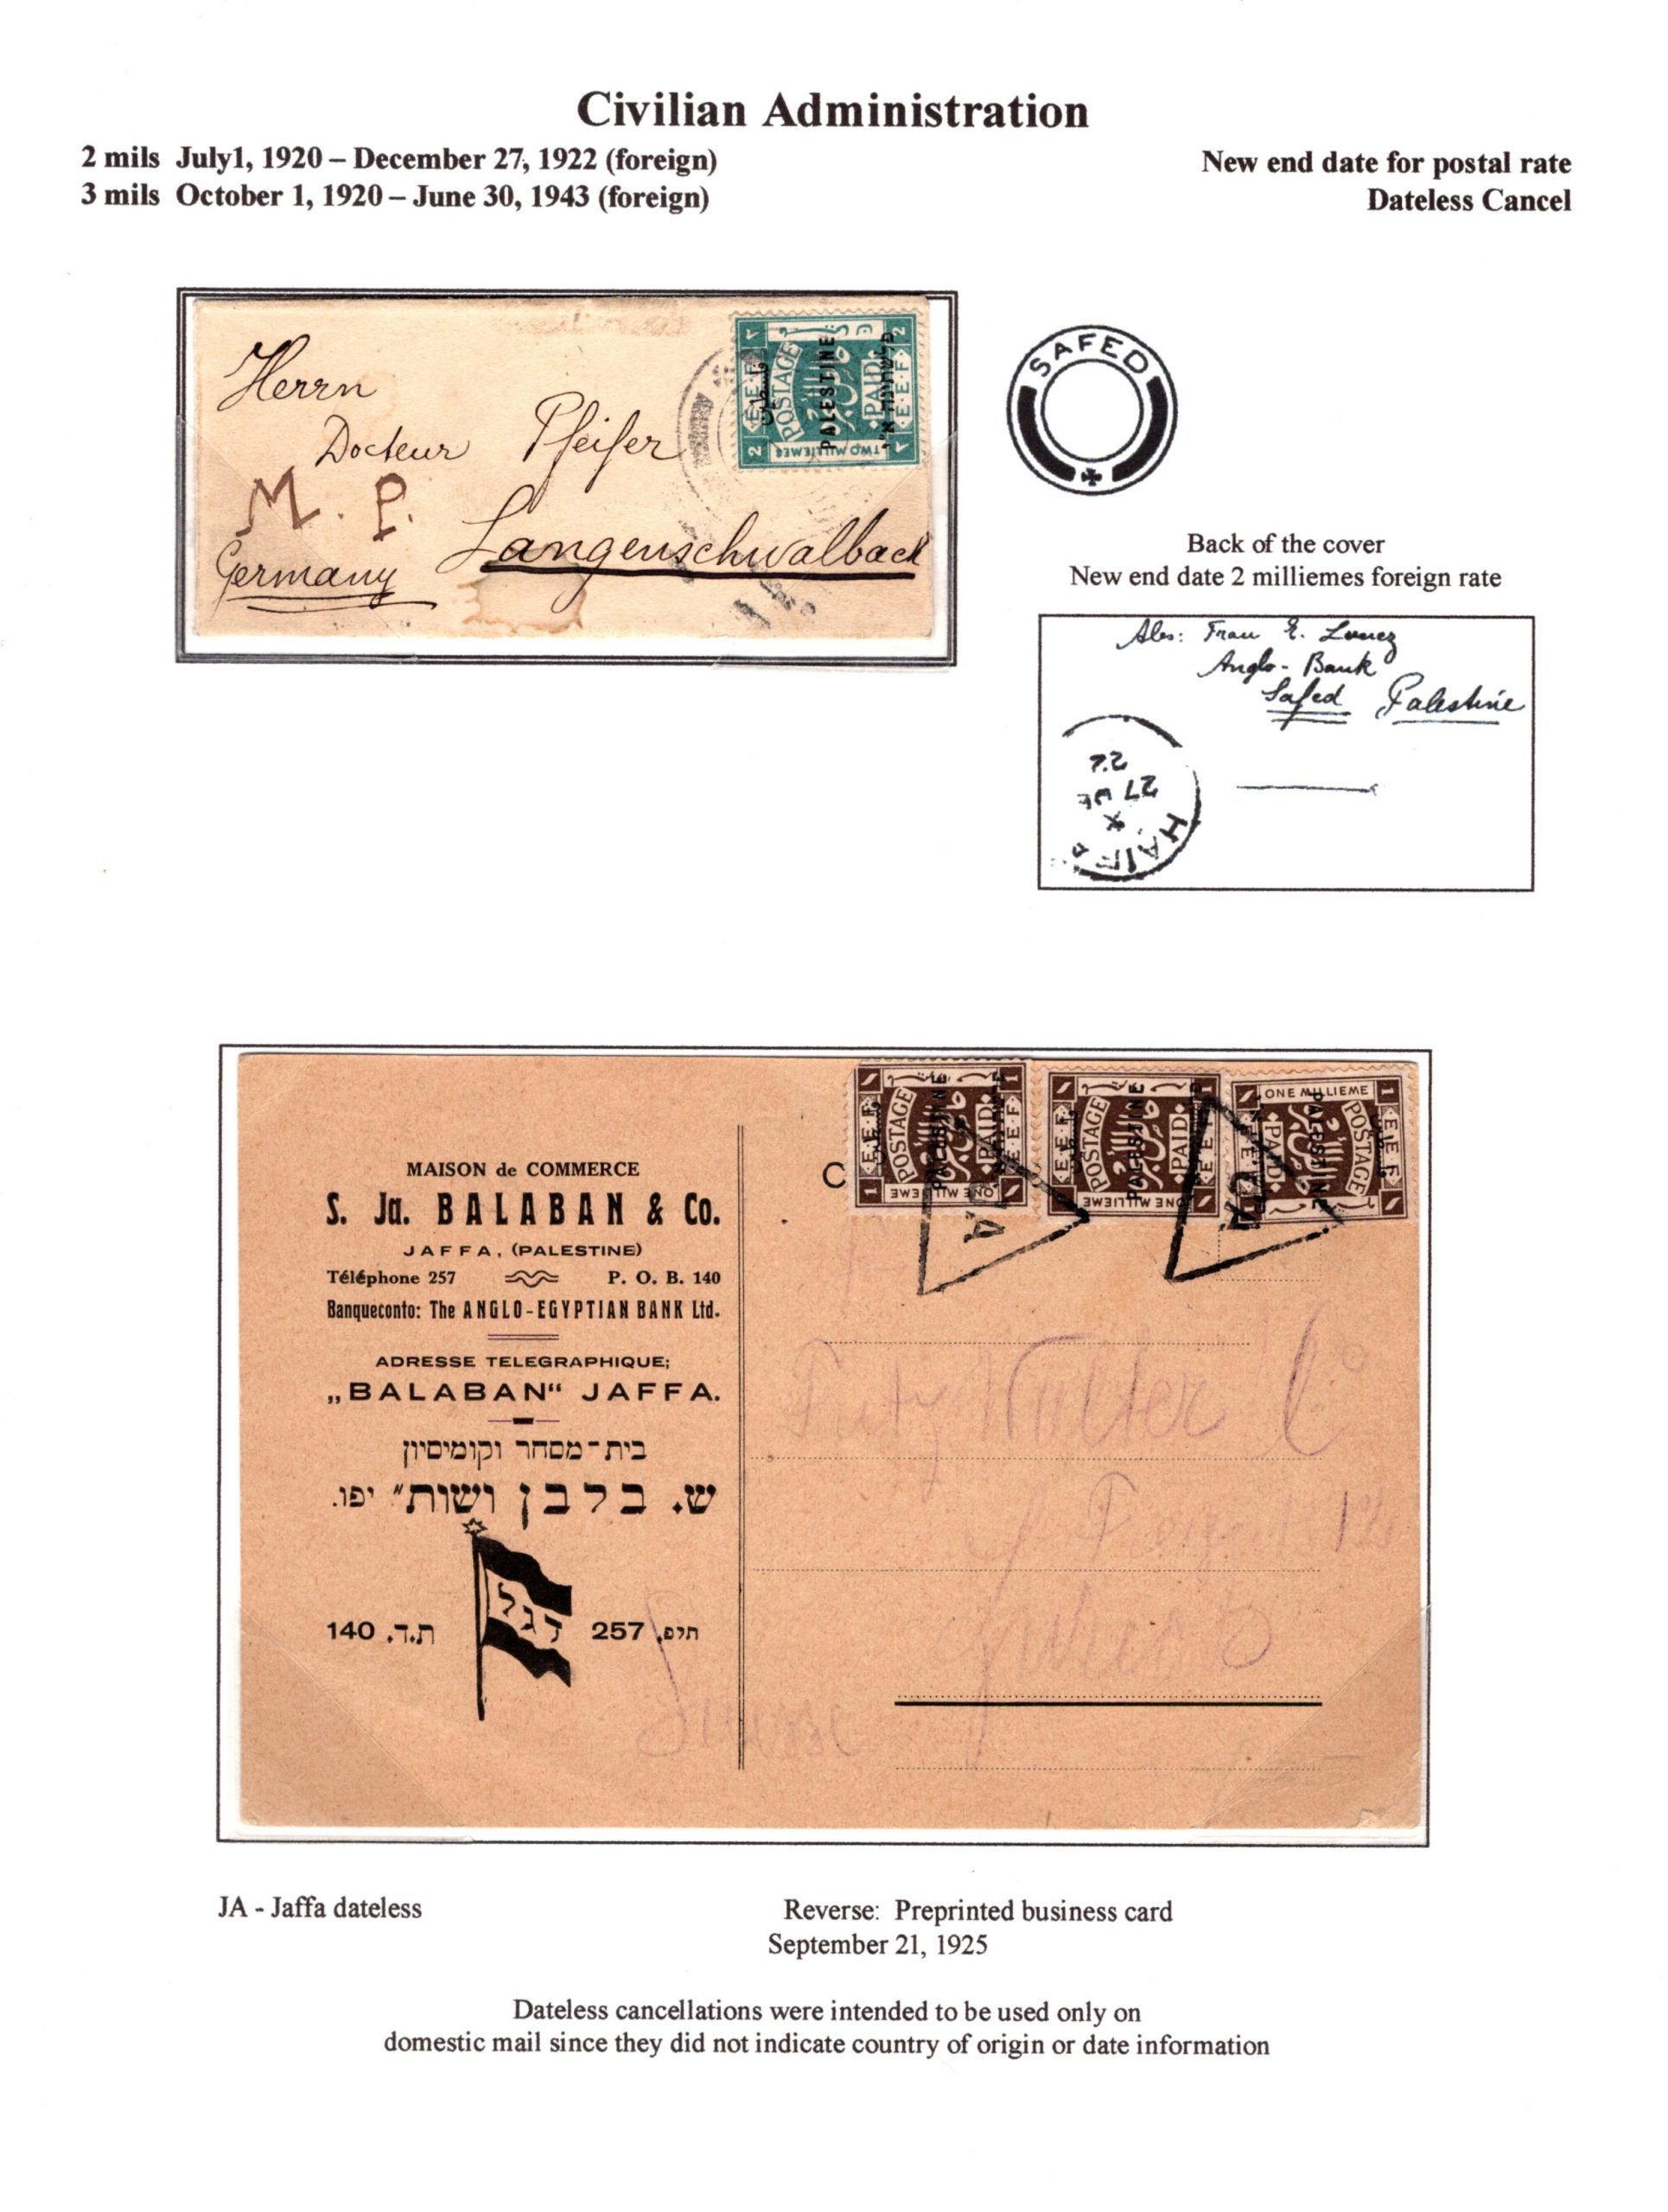 Civilian Administration
2 mils July1, 1920 – December 27, 1922 (foreign)
3 mils October 1, 1920 – June 30, 1943 (foreign)
New end date for postal rate
Dateless Cancel
Herrn
Docteur Pfeifer
M. P.
Langenschwalbach
Germany
2 E.E.F. ٢
POSTAGE
فلسطين
PALESTINE
PAID
פלשתינה א״י
2 E.E.F. ٢
TWO MILLIEMES
SAFED
Back of the cover
New end date 2 milliemes foreign rate
Abs: Frau E. Luncz
Anglo-Bank
Safed Palestine
HAIFA
27 DE
22
MAISON de COMMERCE
S. Ja. BALABAN & Co.
JAFFA, (PALESTINE)
Téléphone 257 P. O. B. 140
Banqueconto: The ANGLO-EGYPTIAN BANK Ltd.
ADRESSE TELEGRAPHIQUE;
„BALABAN“ JAFFA.
בית-מסחר וקומיסיון
ש. בלבן ושות״ יפו.
דגל
תלפ. 257 ת.ד. 140
C
1 E.E.F. ١
POSTAGE
PALESTINE
PAID
ONE MILLIEME
1 E.E.F. ١
POSTAGE
PALESTINE
PAID
ONE MILLIEME
1 E.E.F. ١
POSTAGE
PALESTINE
PAID
ONE MILLIEME
JA
JA
Suisse
JA - Jaffa dateless
Reverse: Preprinted business card
September 21, 1925
Dateless cancellations were intended to be used only on
domestic mail since they did not indicate country of origin or date information